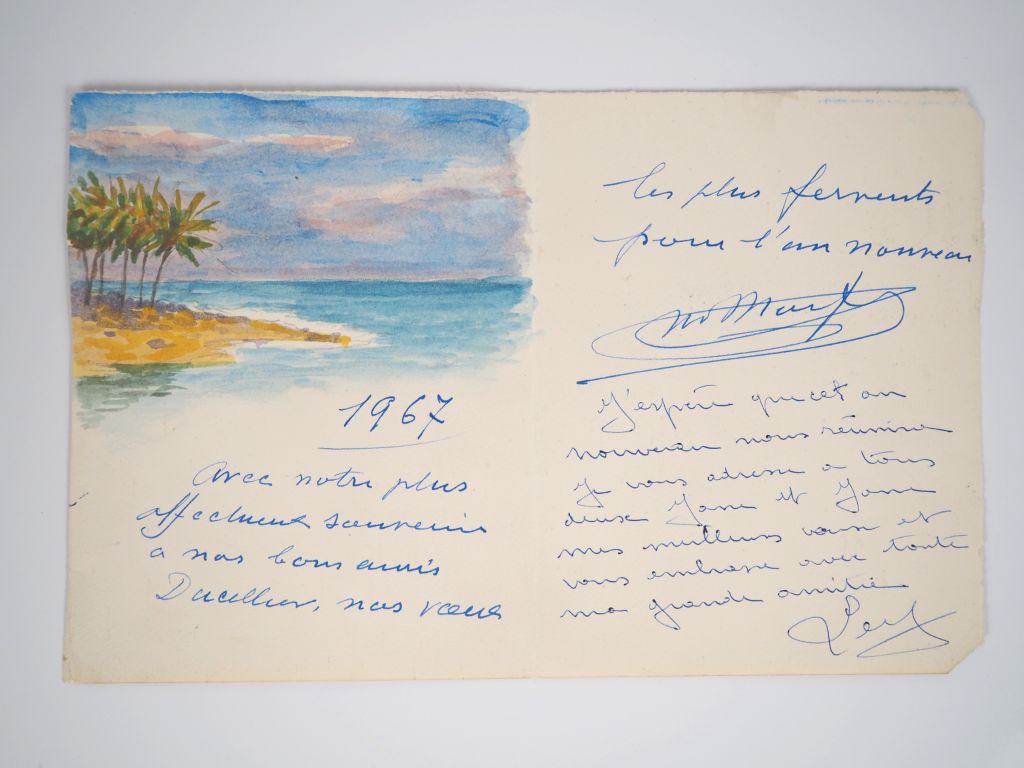 1967
Avec notre plus
affectueux souvenir
a nos bons amis
nos vœux
les plus fervents
pour l'an nouveau
J'espère que cet an
nouveau nous réunira
Je vous adresse a tous
deux et
mes meilleurs vœux et
vous embrasse avec toute
ma grande amitié